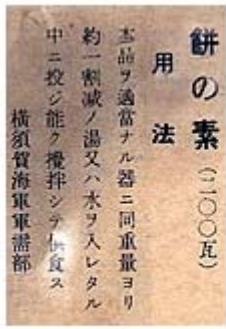 餅の素(二〇〇瓦)
用法
本品ヲ適當ナル器ニ同重量ヨリ
約一割減ノ湯又ハ水ヲ入レタル
中ニ投ジ能ク攪拌シテ供食ス
橫須賀海軍軍需部